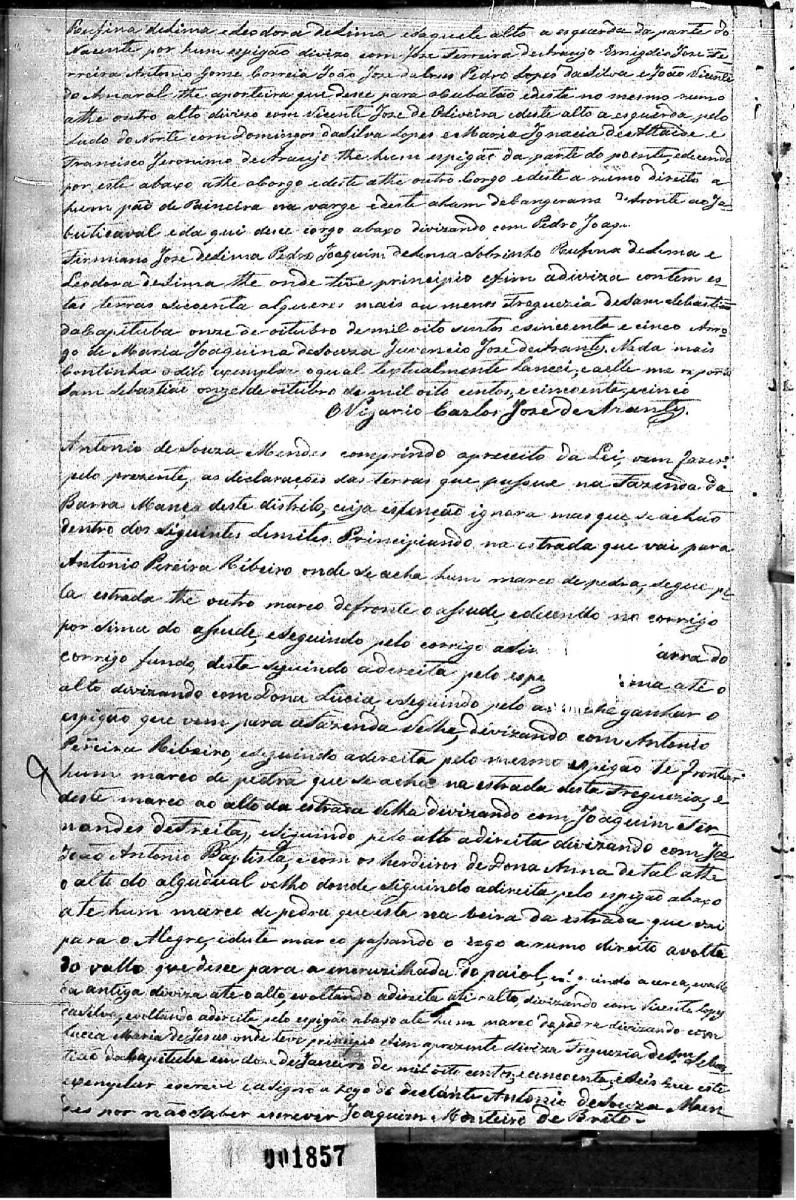 Rufina de Lima e Leodora de Lima e daquele alto a esquerda da parte do
Nacente por hum espigão divizo com Jose Ferreira de Araujo Emigdio Jose Fer
reira Antonio Gomes Correia João Jose Pedro Lopes da Silva e João Vicente
do Amaral the aponteira que desce para o Cubatão e deste no mesmo rumo
athe outro alto divizo com Vicente Jose de Oliveira e deste alto a esquerda pelo
Lado do Norte com Domingos da Silva Lopes e Maria Ignacia de Attaide e
Francisco Jeronimo de Araujo the hum espigão da parte do poente, e decendo
por este abaxo athe o borgo e deste athe outro Corgo e deste a rumo direito a
hum páo de Paineira na varge e deste a hum de defronte ao Ja
buticaval e da qui desce corgo abaxo divizando com Pedro Joaq.
Firmiano Jose de Lima Pedro Joaquim de Lima Sobrinho Rufina de Lima e
Leodora de Lima, the onde teve principio e fim a diviza contem es
tas terras sincoenta alqueres mais ou menos Freguezia de Sam Sebastião
da Capituba onze de oitubro de mil oito sentos e sincoenta e cinco Arro
go de Maria Joaquina de Souza Juvencio Jose de Arantes. Nada mais
Continha o dito exemplar o qual textualmente Lancei, e a elle me reporto
Sam Sebastião onze de oitubro de mil oito centos, e cincoenta, e cinco
O Vigario Carlos Jose de Arantes.
Antonio de Souza Mendes comprindo apreceito da Lei, vem fazer
pelo prezente, as declarações das terras que possue na Fazenda da
Barra Mança deste distrito, cuja estenção ignora mas que se achão
dentro dos siguintes Lemites. Principiando na estrada que vai para
Antonio Pereira Ribeiro onde se acha hum marco de pedra, segue pe
la estrada the outro marco defronte o assude, e decendo no corrigo
por sima do assude, e seguindo pelo corrigo a arra do
corrigo fundo, deste seguindo a direita pelo espig ima até o
alto divizando com Dona Lucia, e seguindo pelo ganhar o
espigão que vem para a fazenda velha, divizando com Antonio
Pereira Ribeiro, e seguindo a direita pelo mesmo espigão te frontear
hum marco de pedra que se acha na estrada desta Freguezia, e
deste marco ao alto da estrada velha divizando com Joaquim Fer
nandes de Freita, e siguindo pelo alto a direita divizando com Joze
João Antonio Baptista, e com os herdeiros de Dona Anna de tal athe
o alto do algudual velho donde siguindo a direita pelo espigão abaxo
ate hum marco de pedra que esta na beira da estrada que vai
para o Alegre, e deste marco passando o rego a rumo direito a volta
do vallo que desce para a encruzilhada do paiol, seguindo a cerca, e vallo
da antiga diviza ate o alto, e voltando a direita ate o alto, divizando com Vicente Lopes
da Silva, e voltando a direita pelo espigão abaxo até hum marco de pedra divizando com
Lucia Maria de Jesus onde teve principio e fim a prezente diviza Freguezia de Sam Sebas
tião da Capituba em doze de Janeiro de mil oito centos, e cincoenta, e seis que este
exemplar escrevi e asigno a rogo do declarante Antonio de Souza Men
des por não saber escrever Joaquim Monteiro de Brito.
001857